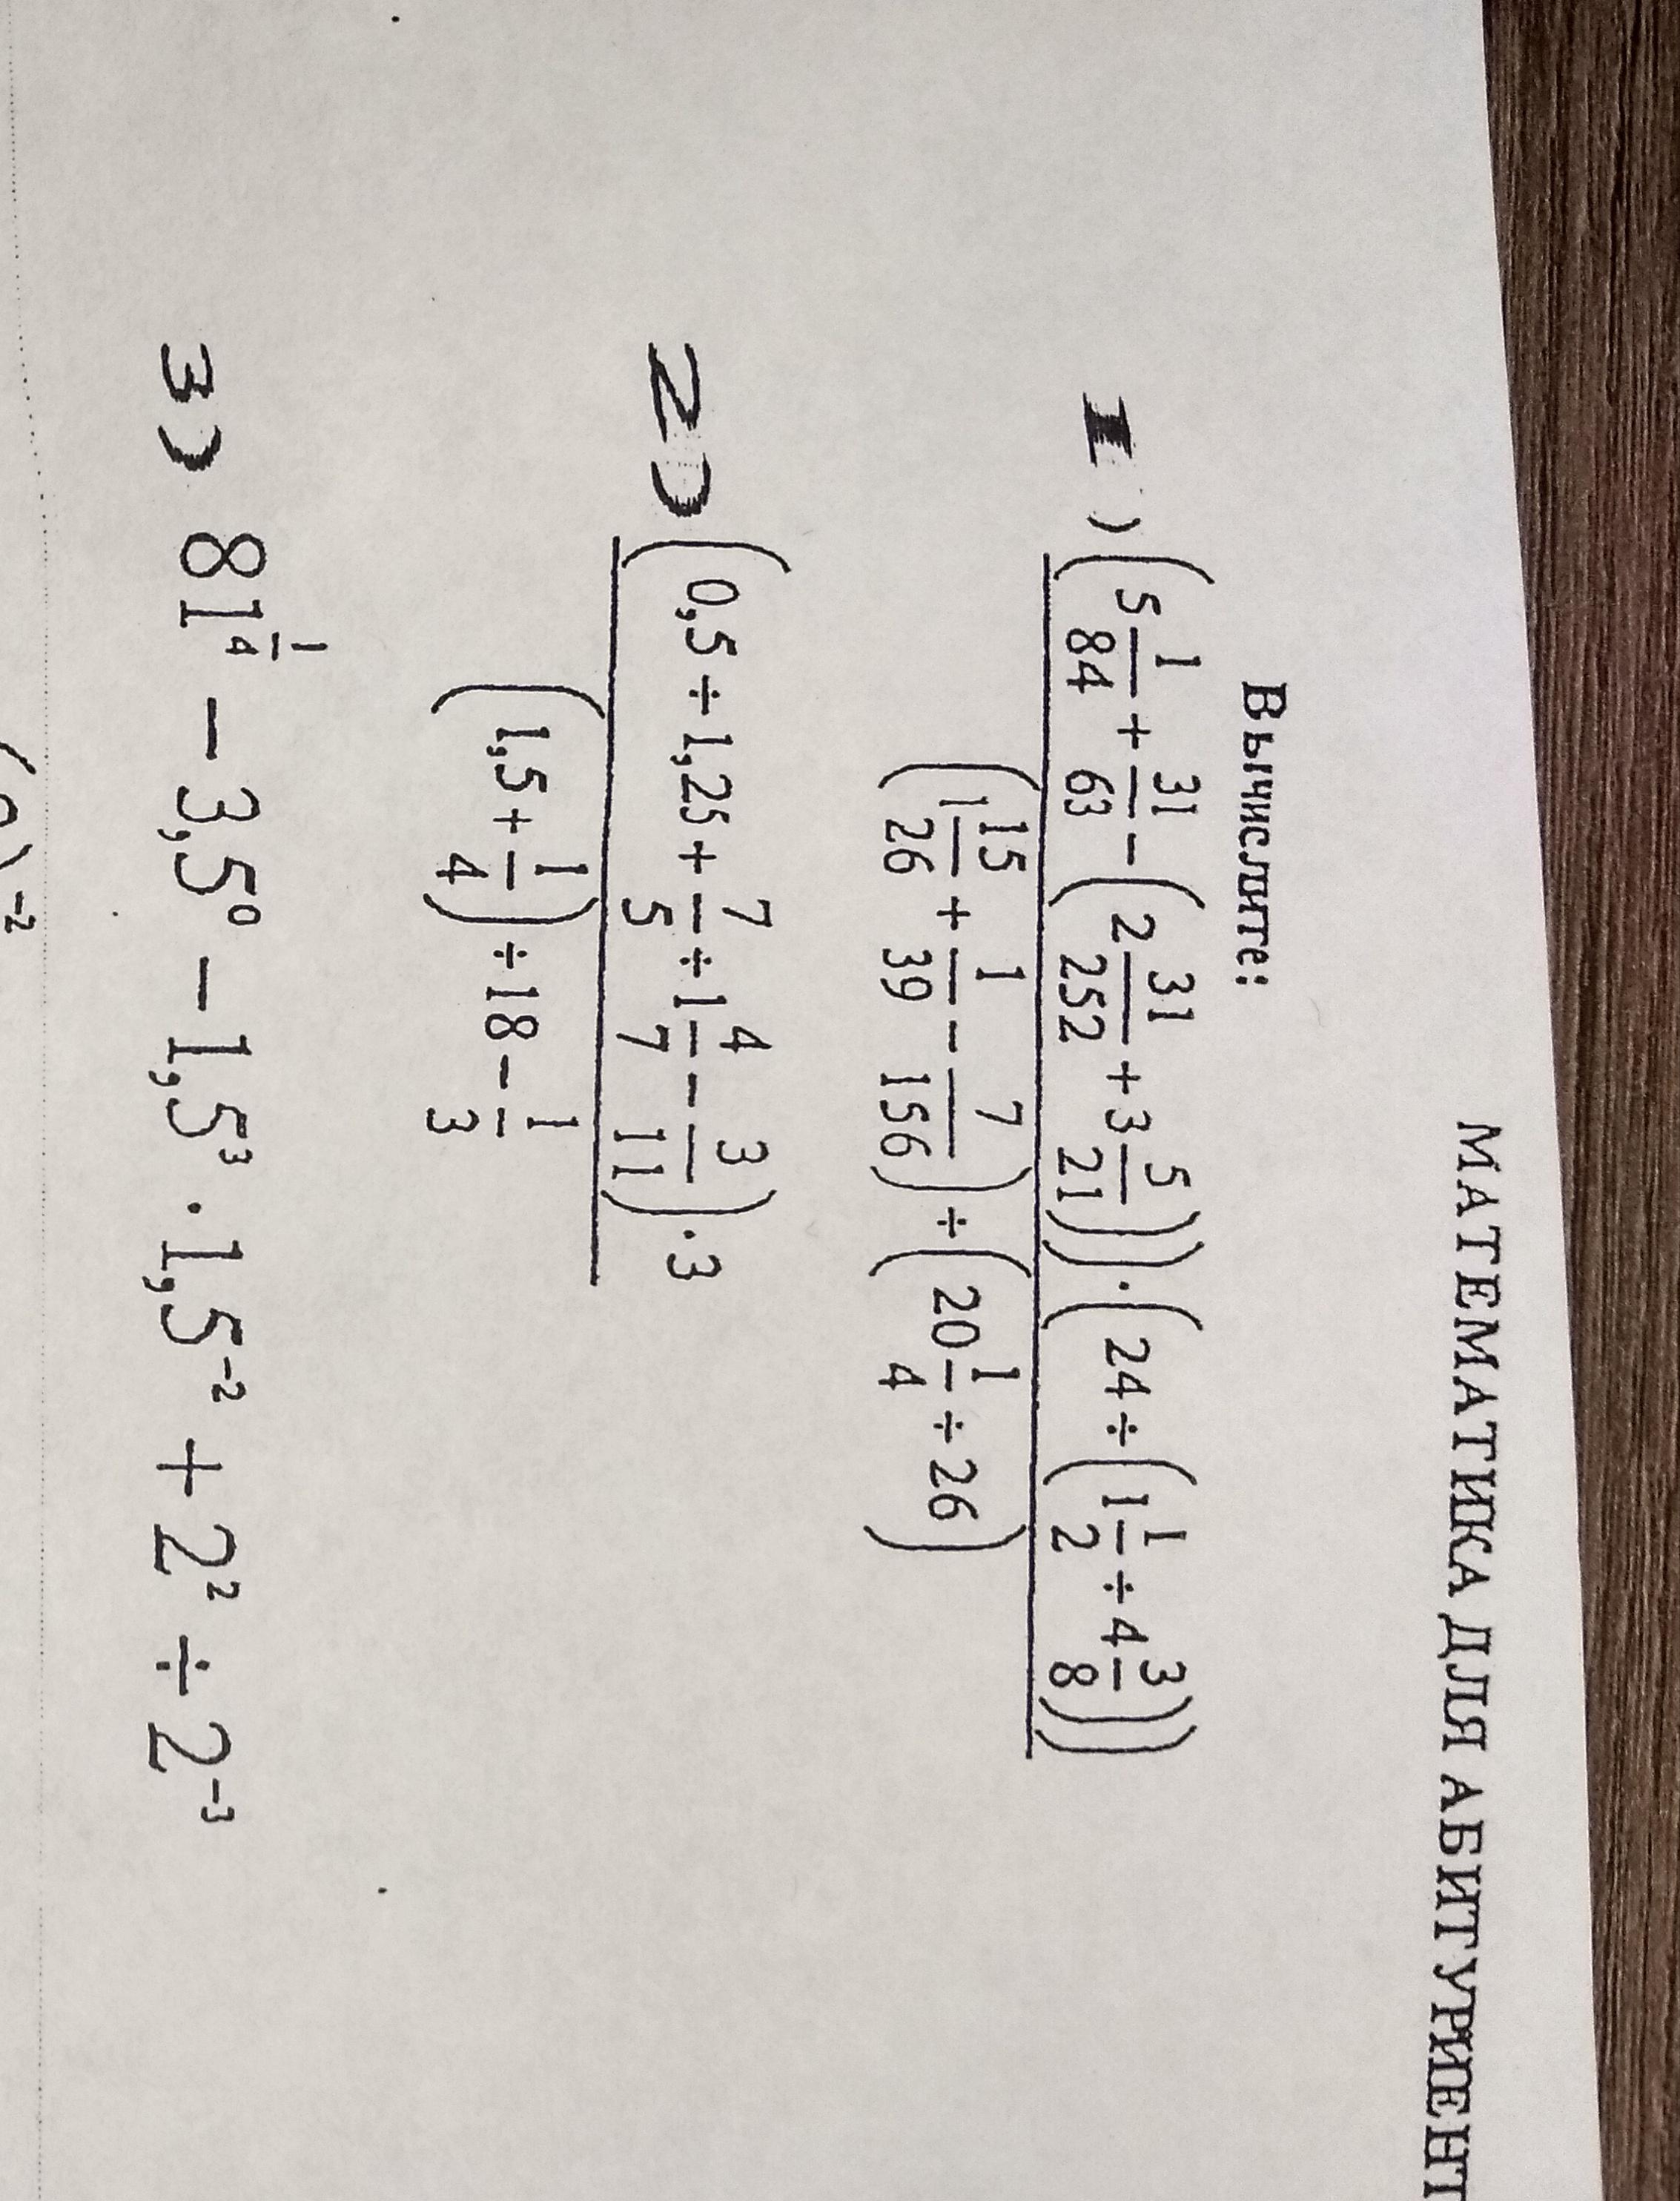 МАТЕМАТИКА ДЛЯ АБИТУРИЕНТ
Вычислите:
1) ((5 1/84 + 31/63 − (2 31/252 + 3 5/21)) · (24 ÷ (1 1/2 ÷ 4 3/8)))
(1 15/26 + 1/39 − 7/156) ÷ (20 1/4 ÷ 26)
2) (0,5 ÷ 1,25 + 7/5 ÷ 1 4/7 − 3/11) · 3
(1,5 + 1/4) ÷ 18 − 1/3
3) 81^(1/4) − 3,5⁰ − 1,5³ · 1,5⁻² + 2² ÷ 2⁻³